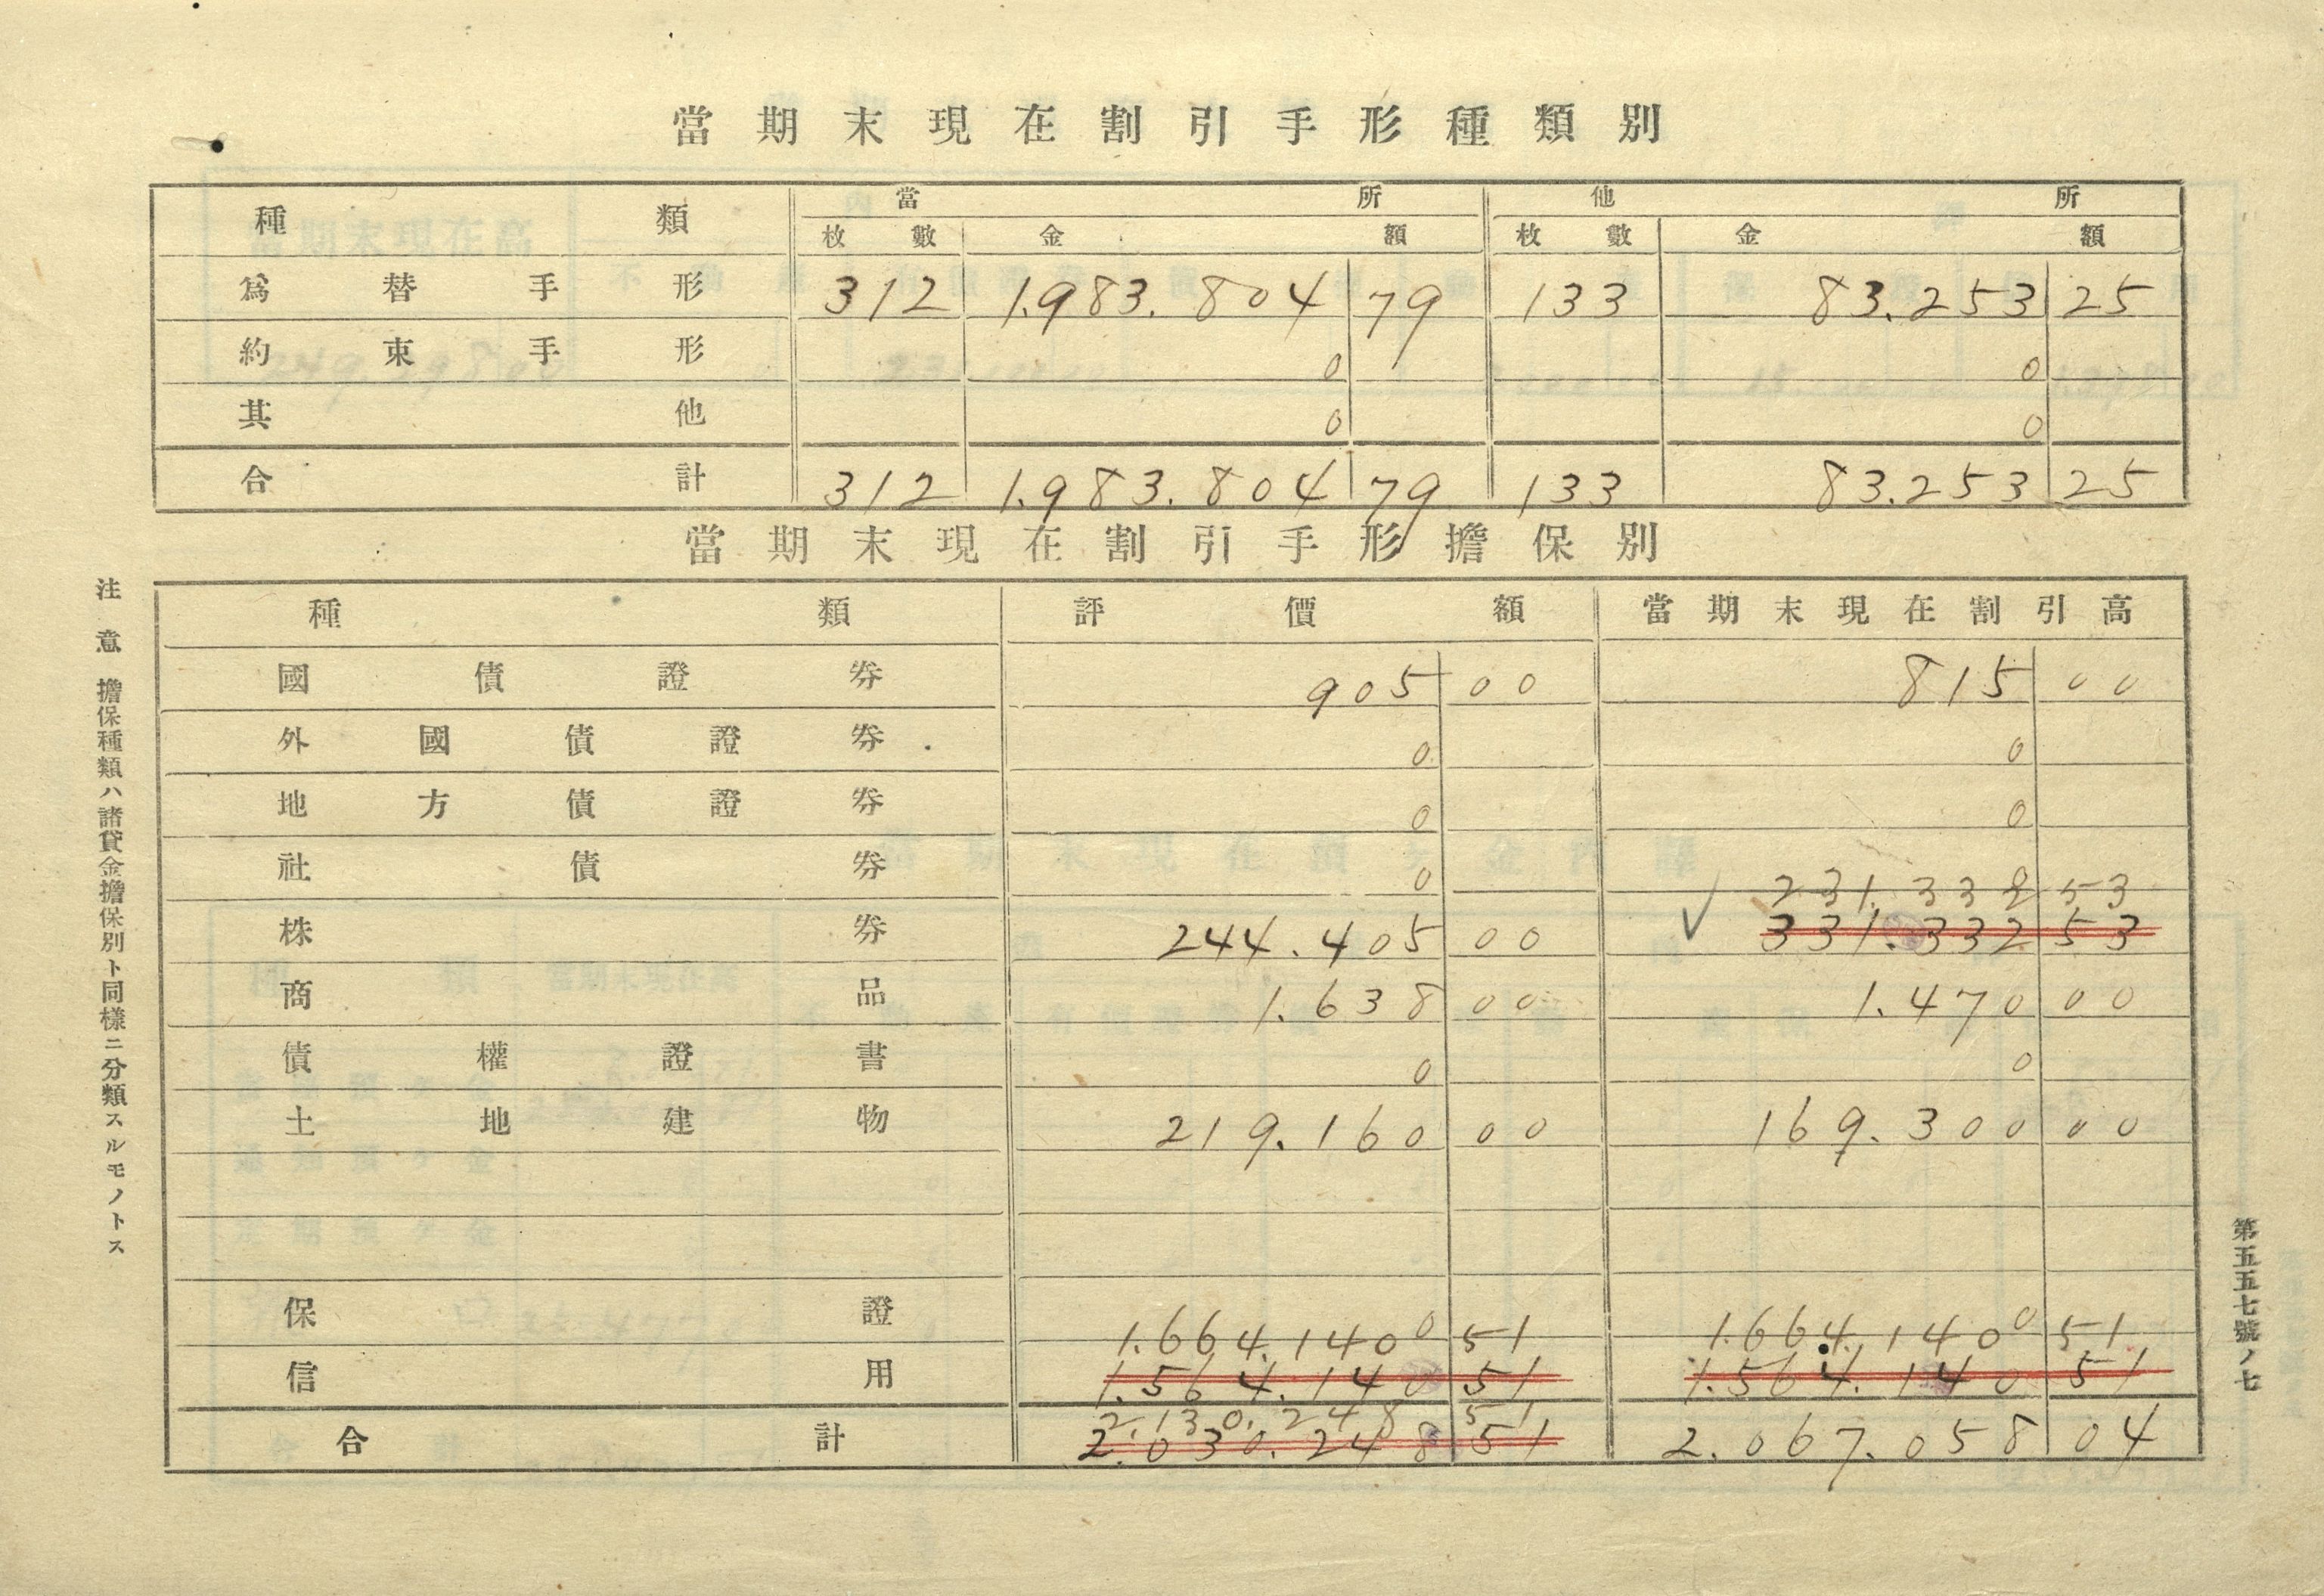 當期末現在割引手形種類別
種類 當所 他所
枚數 金額 枚數 金額
爲替手形 312 1.983.804 79 133 83.253 25
約束手形 0 0
其他 0 0
合計 312 1.983.804 79 133 83.253 25
當期末現在割引手形擔保別
種類 評價額 當期末現在割引高
國債證券 905 00 815 00
外國債證券 0 0
地方債證券 0 0
社債券 0
231.332 53
株券 244.405 00 331.332 53
商品 1.638 00 1.470 00
債權證書 0 0
土地建物 219.160 00 169.300 00
保證
1.664.140 51 1.664.140 51
信用 1.564.140 51 1.564.140 51
2.130.248 51
合計 2.030.248 51 2.067.058 04
注意 擔保種類ハ諸貸金擔保別ト同樣ニ分類スルモノトス
第五五七號ノ七